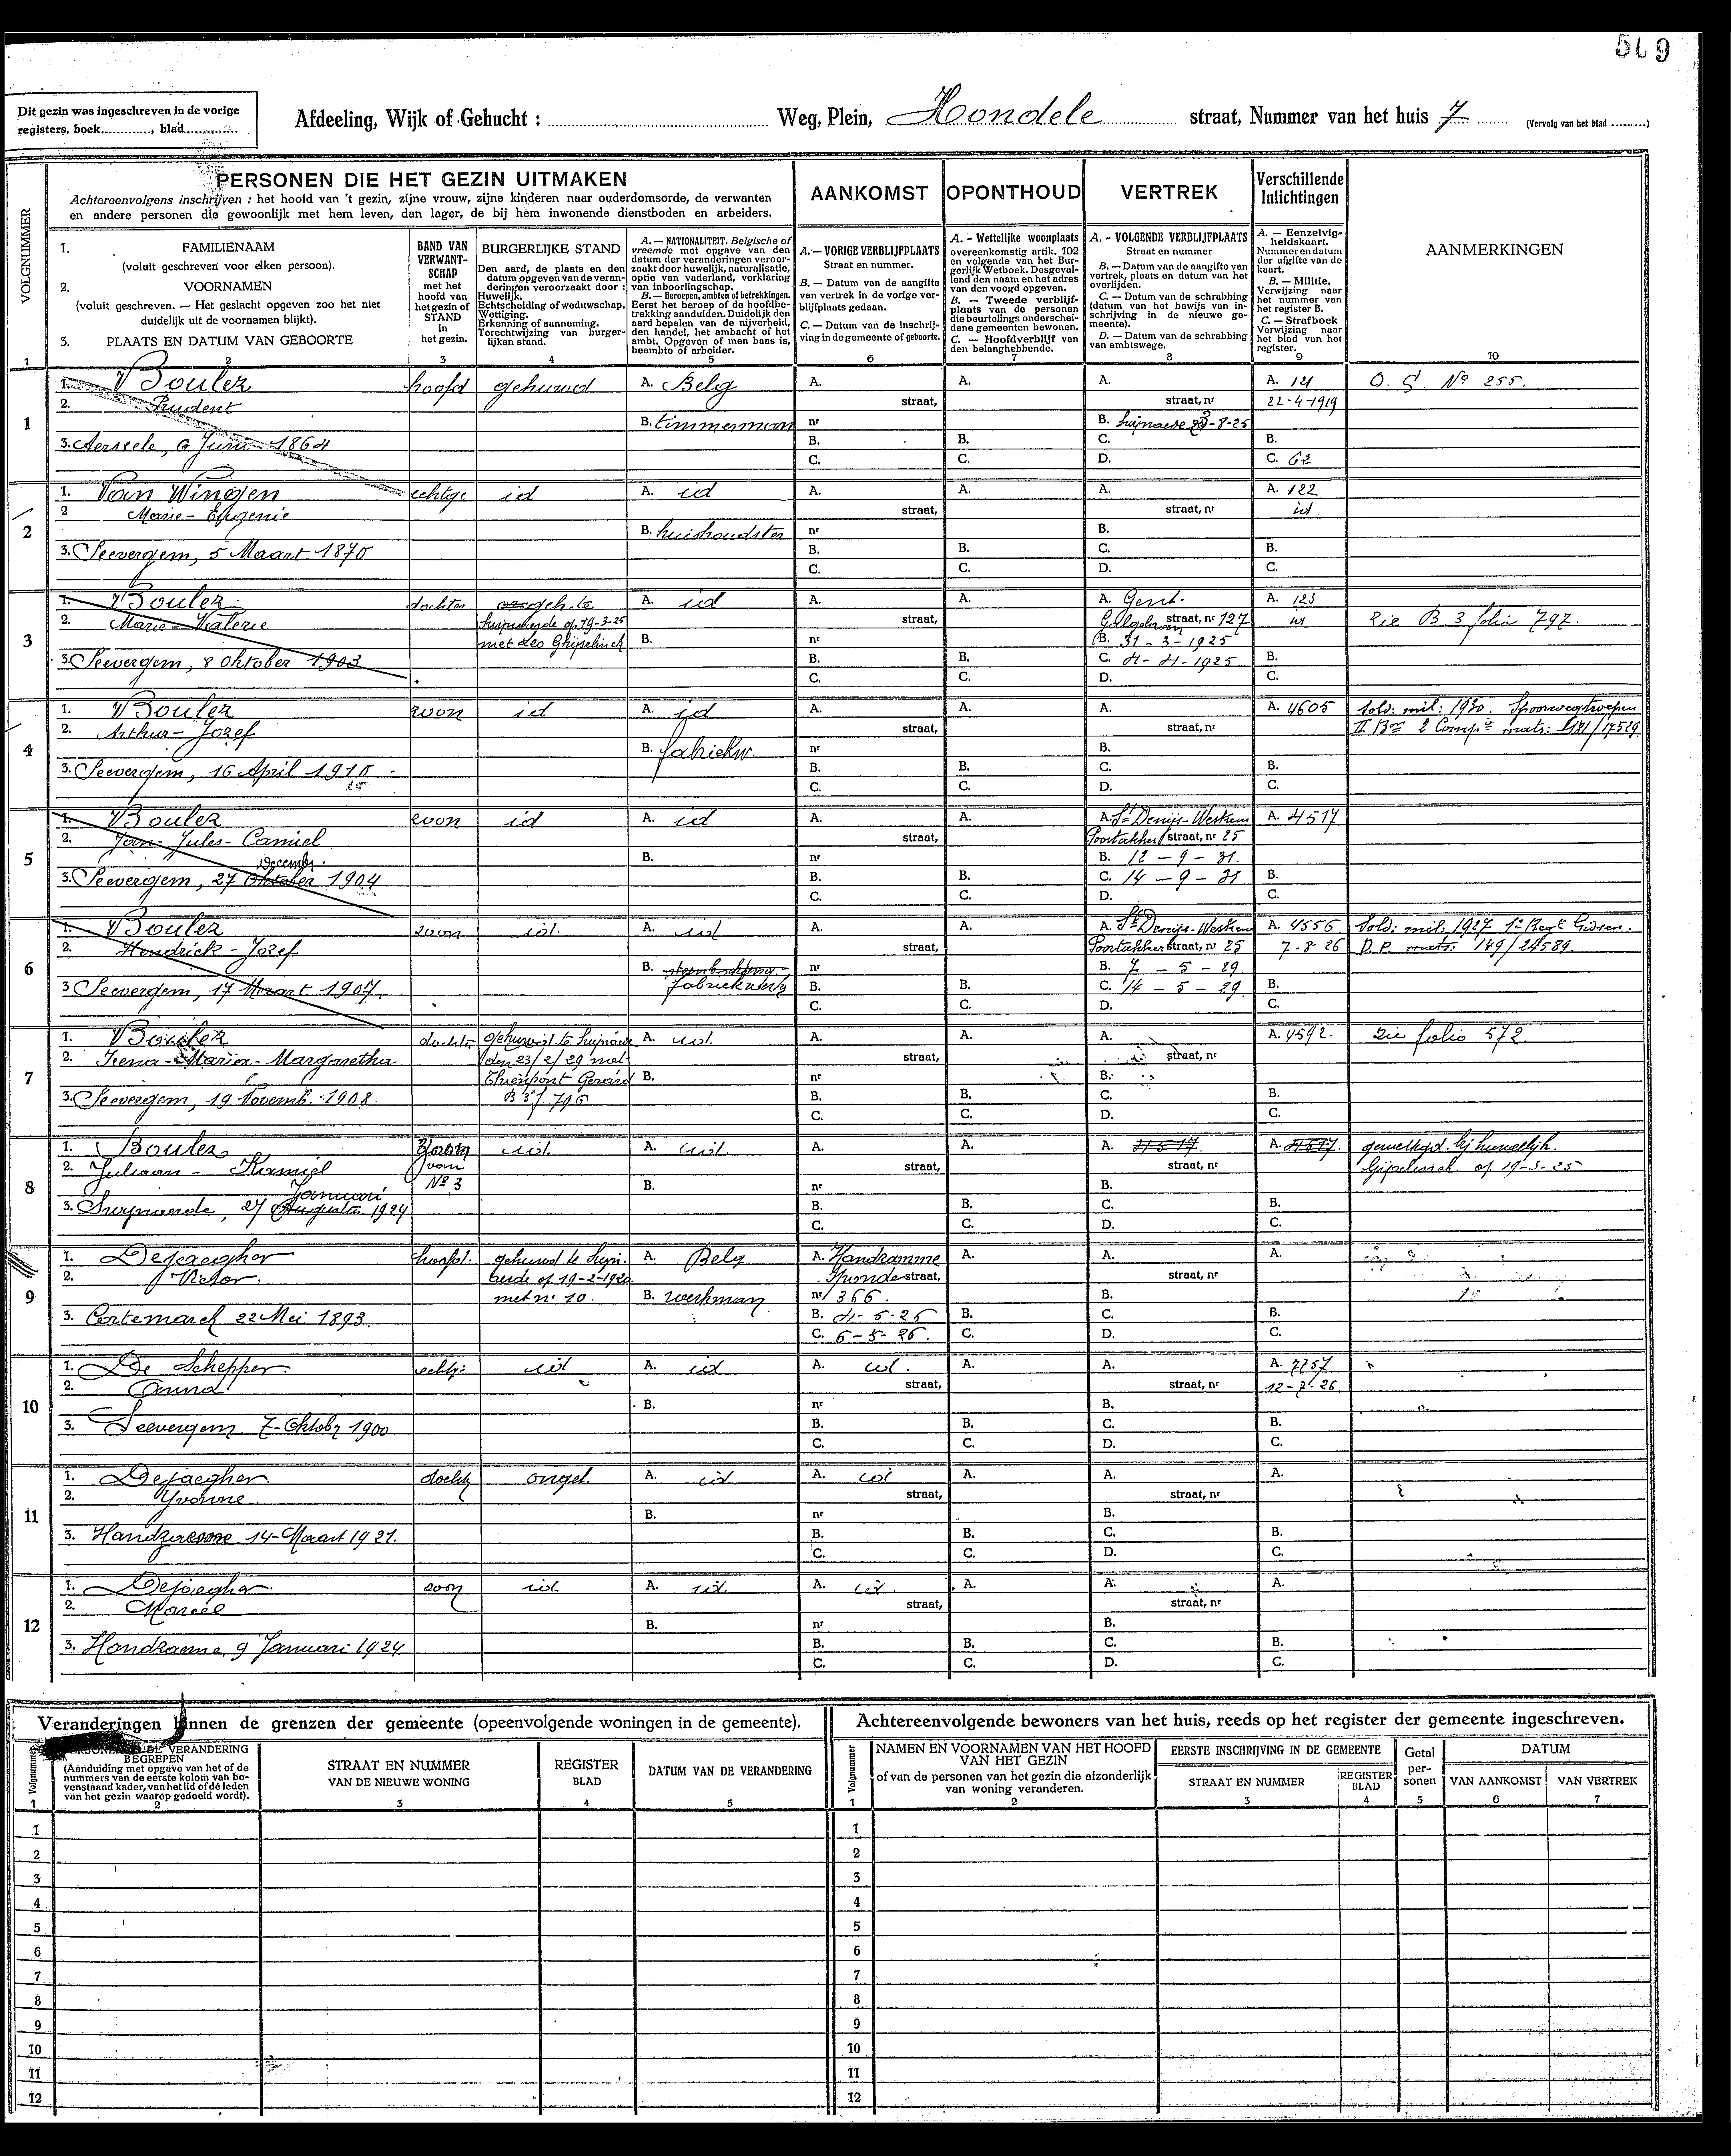 569
Dit gezin was ingeschreven in de vorige
registers, boek............, blad..............
Afdeeling, Wijk of Gehucht : Weg, Plein, Hondele straat, Nummer van het huis 7 (Vervolg van het blad .........)
VOLGNUMMER
PERSONEN DIE HET GEZIN UITMAKEN
Achtereenvolgens inschrijven : het hoofd van 't gezin, zijne vrouw, zijne kinderen naar ouderdomsorde, de verwanten
en andere personen die gewoonlijk met hem leven, dan lager, de bij hem inwonende dienstboden en arbeiders.
AANKOMST
OPONTHOUD
VERTREK
Verschillende
Inlichtingen
AANMERKINGEN
1. FAMILIENAAM
(voluit geschreven voor elken persoon).
2. VOORNAMEN
(voluit geschreven. — Het geslacht opgeven zoo het niet
duidelijk uit de voornamen blijkt).
3. PLAATS EN DATUM VAN GEBOORTE
BAND VAN
VERWANT-
SCHAP
met het
hoofd van
het gezin of
STAND
in
het gezin.
BURGERLIJKE STAND
Den aard, de plaats en den
datum opgeven van de veran-
deringen veroorzaakt door :
Huwelijk.
Echtscheiding of weduwschap.
Wettiging.
Erkenning of aanneming.
Terechtwijzing van burger-
lijken stand.
A. — NATIONALITEIT. Belgische of
vreemde met opgave van den
datum der veranderingen veroor-
zaakt door huwelijk, naturalisatie,
optie van vaderland, verklaring
van inboorlingschap.
B. — Beroepen, ambten of betrekkingen.
Eerst het beroep of de hoofdbe-
trekking aanduiden. Duidelijk den
aard bepalen van de nijverheid,
den handel, het ambacht of het
ambt. Opgeven of men baas is,
beambte of arbeider.
A. — VORIGE VERBLIJFPLAATS
Straat en nummer.
B. — Datum van de aangifte
van vertrek in de vorige ver-
blijfplaats gedaan.
C. — Datum van de inschrij-
ving in de gemeente of geboorte.
A. - Wettelijke woonplaats
overeenkomstig artik. 102
en volgende van het Bur-
gerlijk Wetboek. Desgeval-
lend den naam en het adres
van den voogd opgeven.
B. — Tweede verblijf-
plaats van de personen
die beurtelings onderschei-
dene gemeenten bewonen.
C. — Hoofdverblijf van
den belanghebbende.
A. - VOLGENDE VERBLIJFPLAATS
Straat en nummer
B. — Datum van de aangifte van
vertrek, plaats en datum van het
overlijden.
C. — Datum van de schrabbing
(datum van het bewijs van in-
schrijving in de nieuwe ge-
meente).
D. — Datum van de schrabbing
van ambtswege.
A. — Eenzelvig-
heidskaart.
Nummer en datum
der afgifte van de
kaart.
B. — Militie.
Verwijzing naar
het nummer van
het register B.
C. — Strafboek
Verwijzing naar
het blad van het
register.
1 2 3 4 5 6 7 8 9 10
1
1. Boulez hoofd gehuwd A. Belg A. A. A. A. 121 O. G. No 255.
2. Prudent straat, straat, nr 22-4-1919
B. timmerman nr B. 23-8-25
3. Aerseele, 6 Juni 1864 B. B. C. B.
C. C. D. C. 62
2
1. Van Wingen echtge id A. id A. A. A. A. 122
2 Marie-Eugenie straat, straat, nr id.
B. huishoudster nr B.
3. Seevergem, 5 Maart 1870 B. B. C. B.
C. C. D. C.
3
1. Boulez dochter geh. te A. id A. A. A. Gent. A. 123
2. Marie-Valerie op 19-3-25 straat, straat, nr 127 id Zie B 3 folio 797.
met Leo Ghijselinck B. nr B. 31-3-1925
3. Seevergem, 8 Oktober 1903 B. B. C. 4-4-1925 B.
C. C. D. C.
4
1. Boulez zoon id A. id A. A. A. A. 4605 Sold: mil: 1930. Spoorwegtroepen
2. Arthur-Jozef straat, straat, nr
B. fabriekw. nr B.
3. Seevergem, 16 April 1910 B. B. C. B.
C. C. D. C.
5
1. Boulez zoon id A. id A. A. A. St Denijs-Westrem A. 4517
2. Jules-Camiel straat, straat, nr 25
Decemb. B. nr B. 12-9-31.
3. Seevergem, 27 Oktober 1904 B. B. C. 14-9-31 B.
C. C. D. C.
6
1. Boulez zoon id. A. id A. A. A. St Denijs-Westrem A. 4556 Sold: mil: 1927 1e Regt Gidsen.
2. Hendrick-Jozef straat, straat, nr 25 7-8-26 D.P. mats: 149/24589
B. fabriekwerk nr B. 7-5-29
3 Seevergem, 17 Maart 1907. B. B. C. 14-5-29 B.
C. C. D. C.
7
1. Boulez dochte gehuwd te A. id. A. A. A. A. 4592. Zie folio 572.
2. Irena-Maria-Margaretha den 23/2/29 met straat, straat, nr
Thienpont Gerard B. nr B.
3. Seevergem, 19 Novemb. 1908. B 3 f. 796 B. B. C. B.
C. C. D. C.
8
1. Boulez Zoon id. A. id. A. A. A. 4517 A. 4517. gewettigd bij huwelijk.
2. Juliaan-Kamiel van straat, straat, nr op 19-3-25
Januari No 3 B. nr B.
3. 27 Augustus 1924 B. B. C. B.
C. C. D. C.
9
1. Dejaegher hoofd. A. Belg A. Handzamme A. A. A.
2. Victor. op 19-2-1920 straat, straat, nr
met nr 10. B. werkman nr 366. B.
3. Cortemarck 22 Mei 1893. B. 4-5-26 B. C. B.
C. 6-5-26. C. D. C.
10
1. De Schepper echtg. id A. id A. id. A. A. A. 7757
2. Anna straat, straat, nr 12-7-26
B. nr B.
3. Seevergem 7-Oktobr 1900 B. B. C. B.
C. C. D. C.
11
1. Dejaegher docht ongel. A. id A. id A. A. A.
2. Yvonne straat, straat, nr
B. nr B.
3. Handzaeme 14-Maart 1921. B. B. C. B.
C. C. D. C.
12
1. Dejaegher zoon id. A. id. A. id. A. A. A.
2. Marcel straat, straat, nr
B. nr B.
3. Handzaeme, 9 Januari 1924 B. B. C. B.
C. C. D. C.
Veranderingen binnen de grenzen der gemeente (opeenvolgende woningen in de gemeente).
Volgnummer
DE VERANDERING
BEGREPEN
(Aanduiding met opgave van het of de
nummers van de eerste kolom van bo-
venstaand kader, van het lid of de leden
van het gezin waarop gedoeld wordt).
STRAAT EN NUMMER
VAN DE NIEUWE WONING
REGISTER
BLAD
DATUM VAN DE VERANDERING
1 2 3 4 5
1
2
3
4
5
6
7
8
9
10
11
12
Achtereenvolgende bewoners van het huis, reeds op het register der gemeente ingeschreven.
Volgnummer
NAMEN EN VOORNAMEN VAN HET HOOFD
VAN HET GEZIN
of van de personen van het gezin die afzonderlijk
van woning veranderen.
EERSTE INSCHRIJVING IN DE GEMEENTE
STRAAT EN NUMMER
REGISTER
BLAD
Getal
per-
sonen
DATUM
VAN AANKOMST VAN VERTREK
1 2 3 4 5 6 7
1
2
3
4
5
6
7
8
9
10
11
12